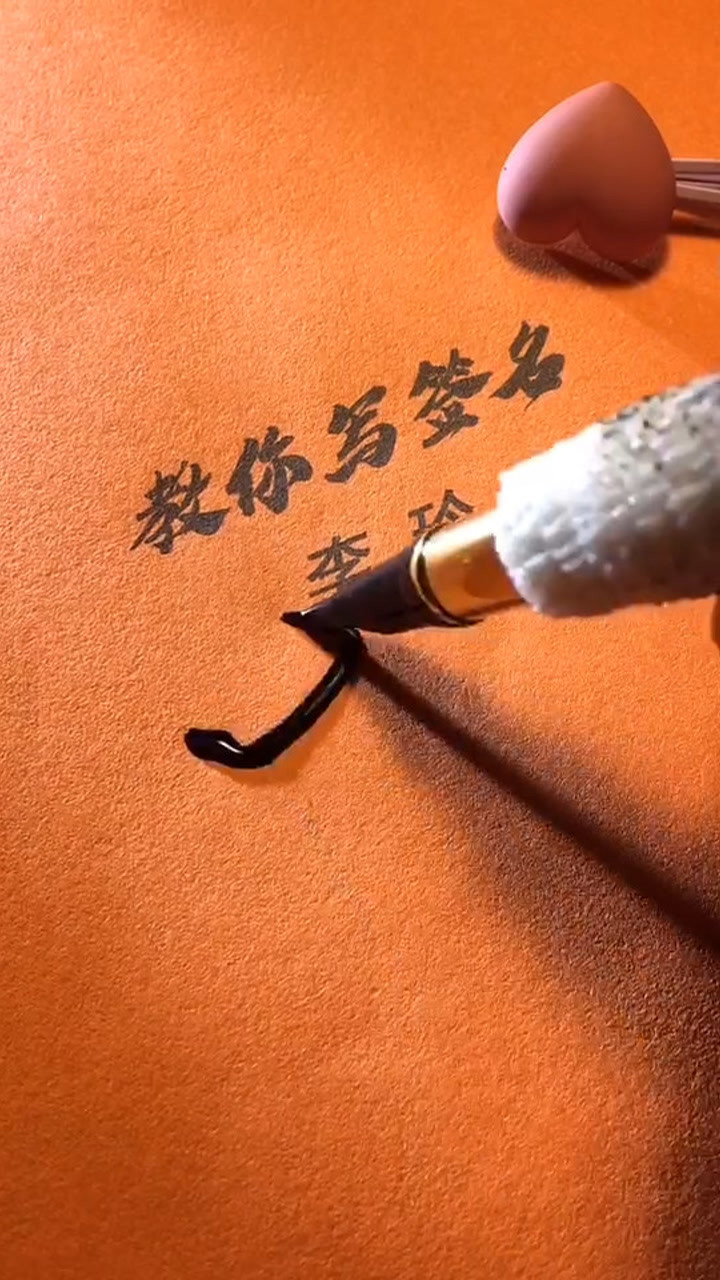 教你写签名
李玲